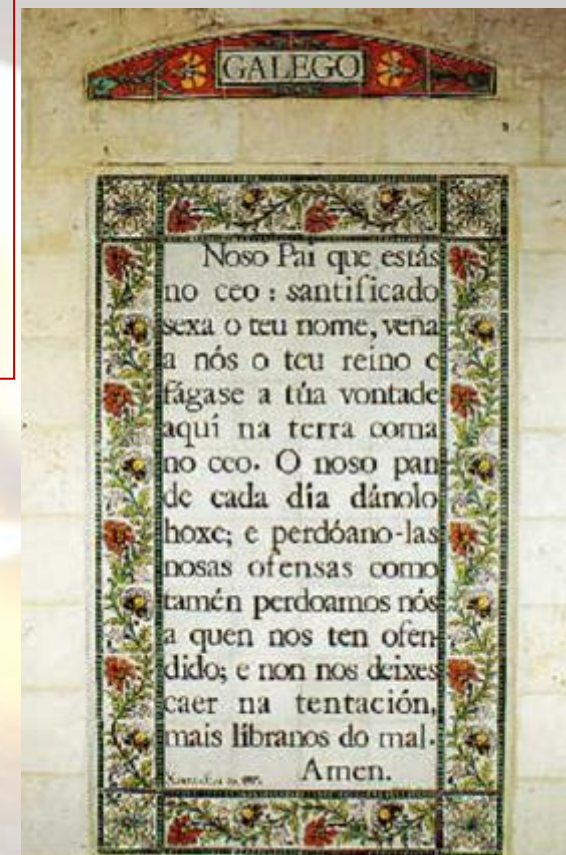 GALEGO
Noso Pai que estás
no ceo : santificado
sexa o teu nome, veña
a nós o teu reino e
fágase a túa vontade
aquí na terra coma
no ceo. O noso pan
de cada día dánolo
hoxe; e perdóano-las
nosas ofensas como
tamén perdoamos nós
a quen nos ten ofen-
dido; e non nos deixes
caer na tentación,
mais líbranos do mal.
Amen.